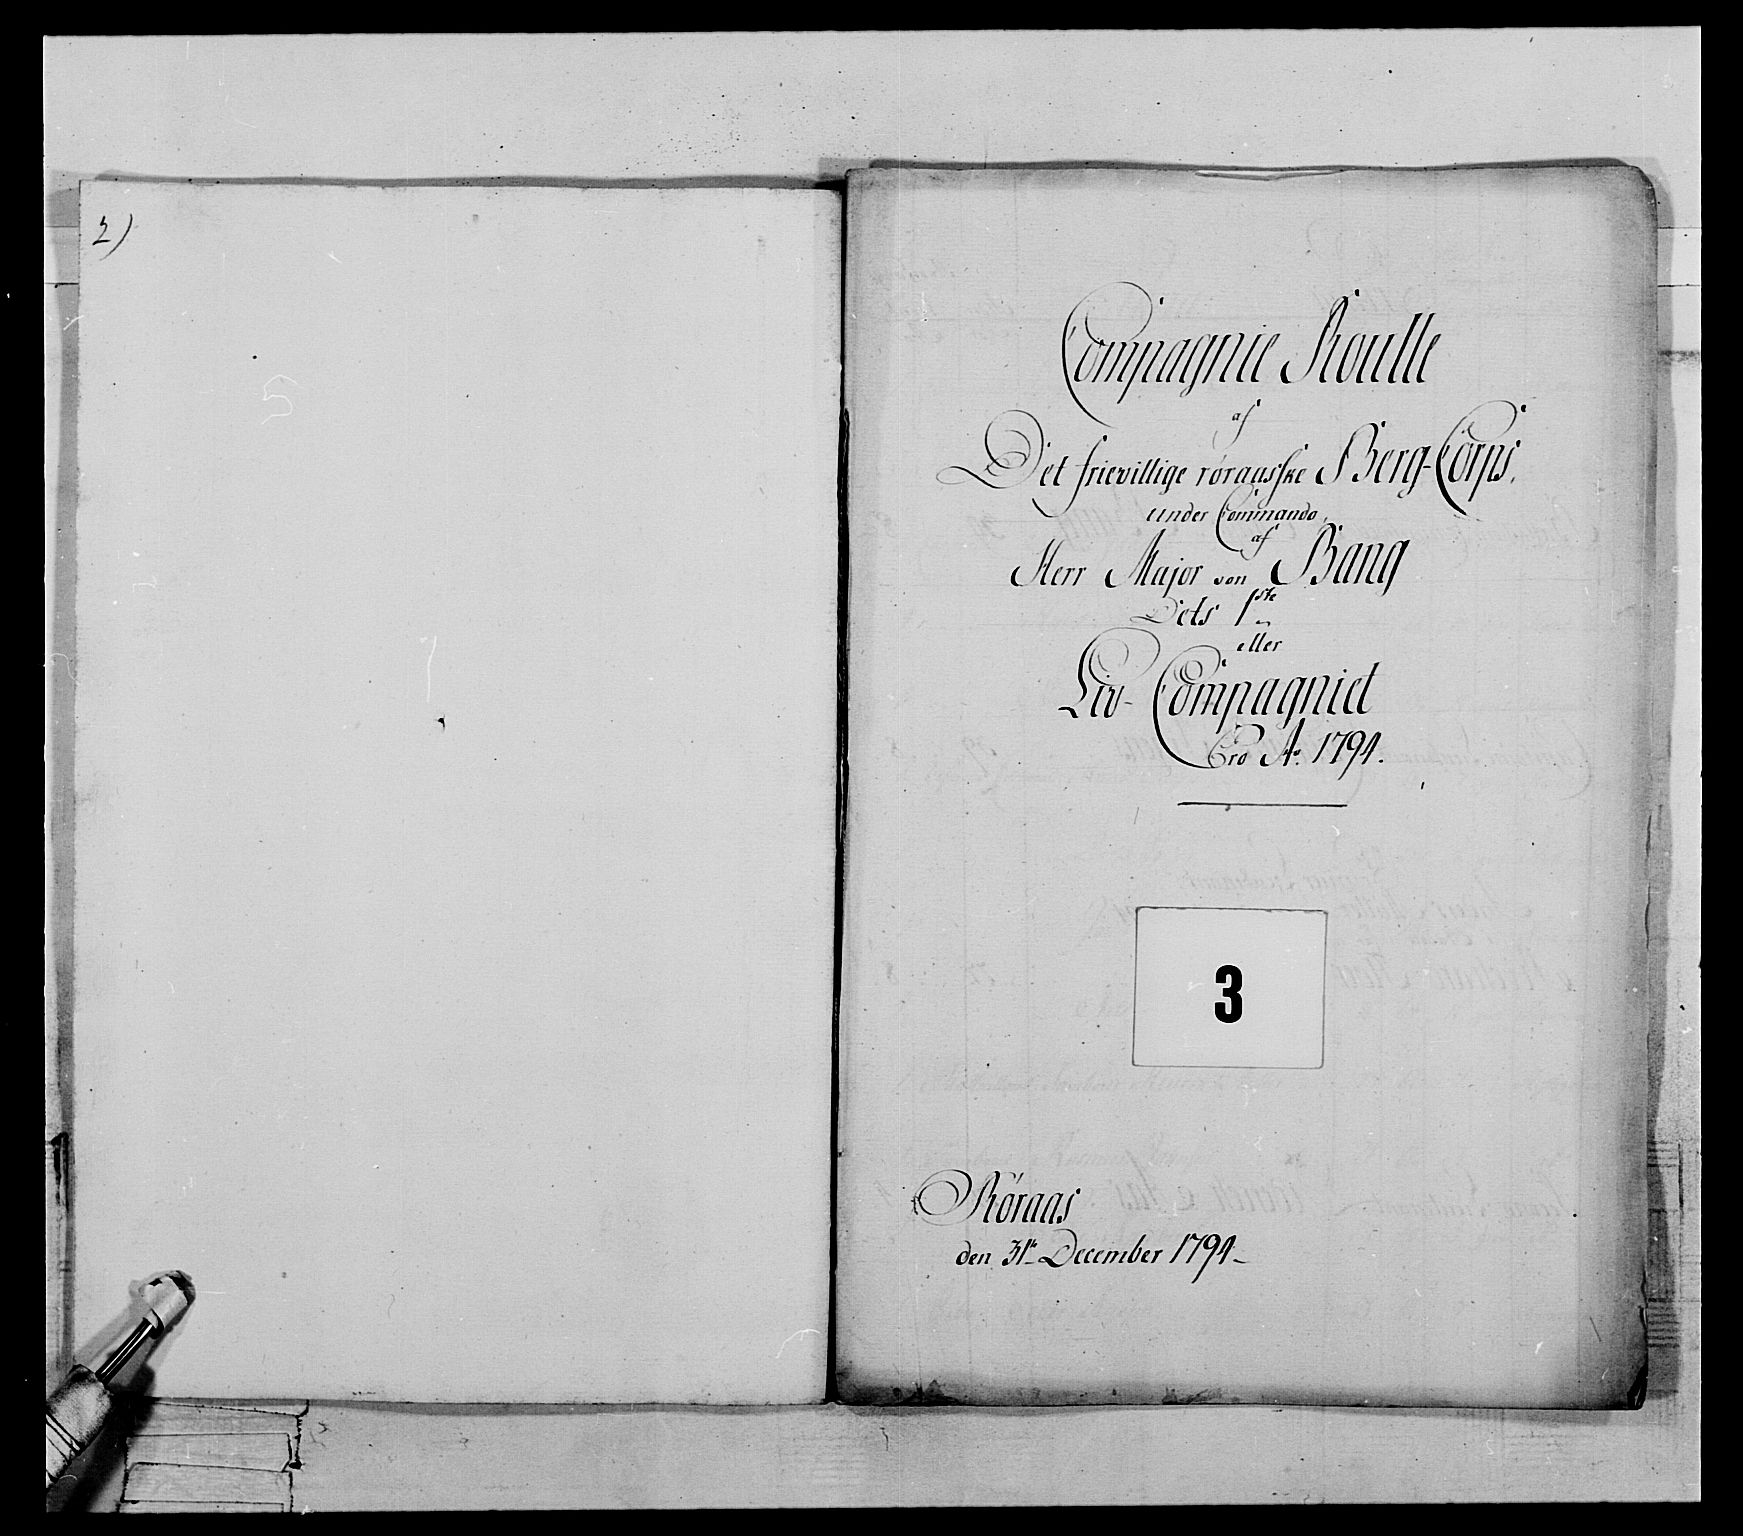 2)
Compagnie Roulle
af
Det frievillige røraasske Berg-Corps,
under Commando,
af
Herr Major von Bang
Dets 1ste
eller
Liv-Compagniet
Pro Ao. 1794.
3
Røraas
den 31te December 1794